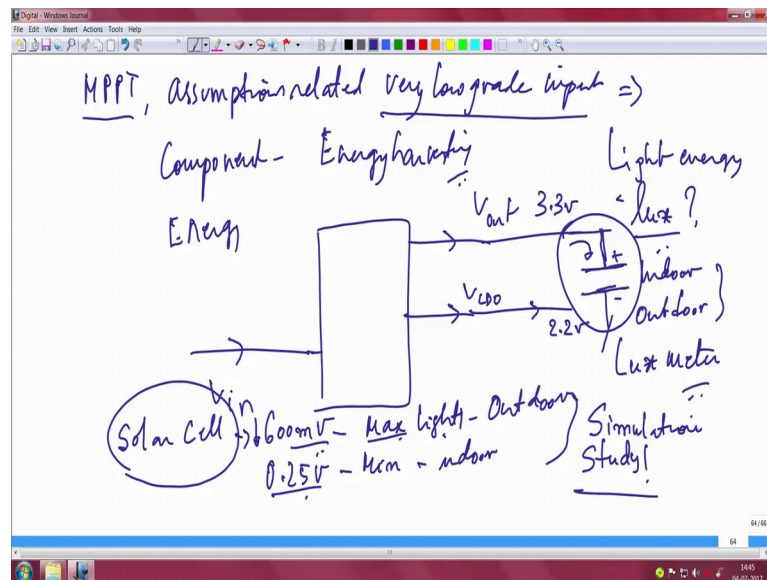 Digital - Windows Journal
File Edit View Insert Actions Tools Help
MPPT, assumptions related very low grade input =>
Component - Energy harvesting
Light energy
Energy
Vout 3.3v
lux ?
+
Indoor
Outdoor
VLDO
-
2.2v
Lux meter
Vin
Solar Cell
600mV - Max light - Outdoor
0.25V - Min - indoor
Simulation
Study!
64/66
64
14:45
04-07-2017